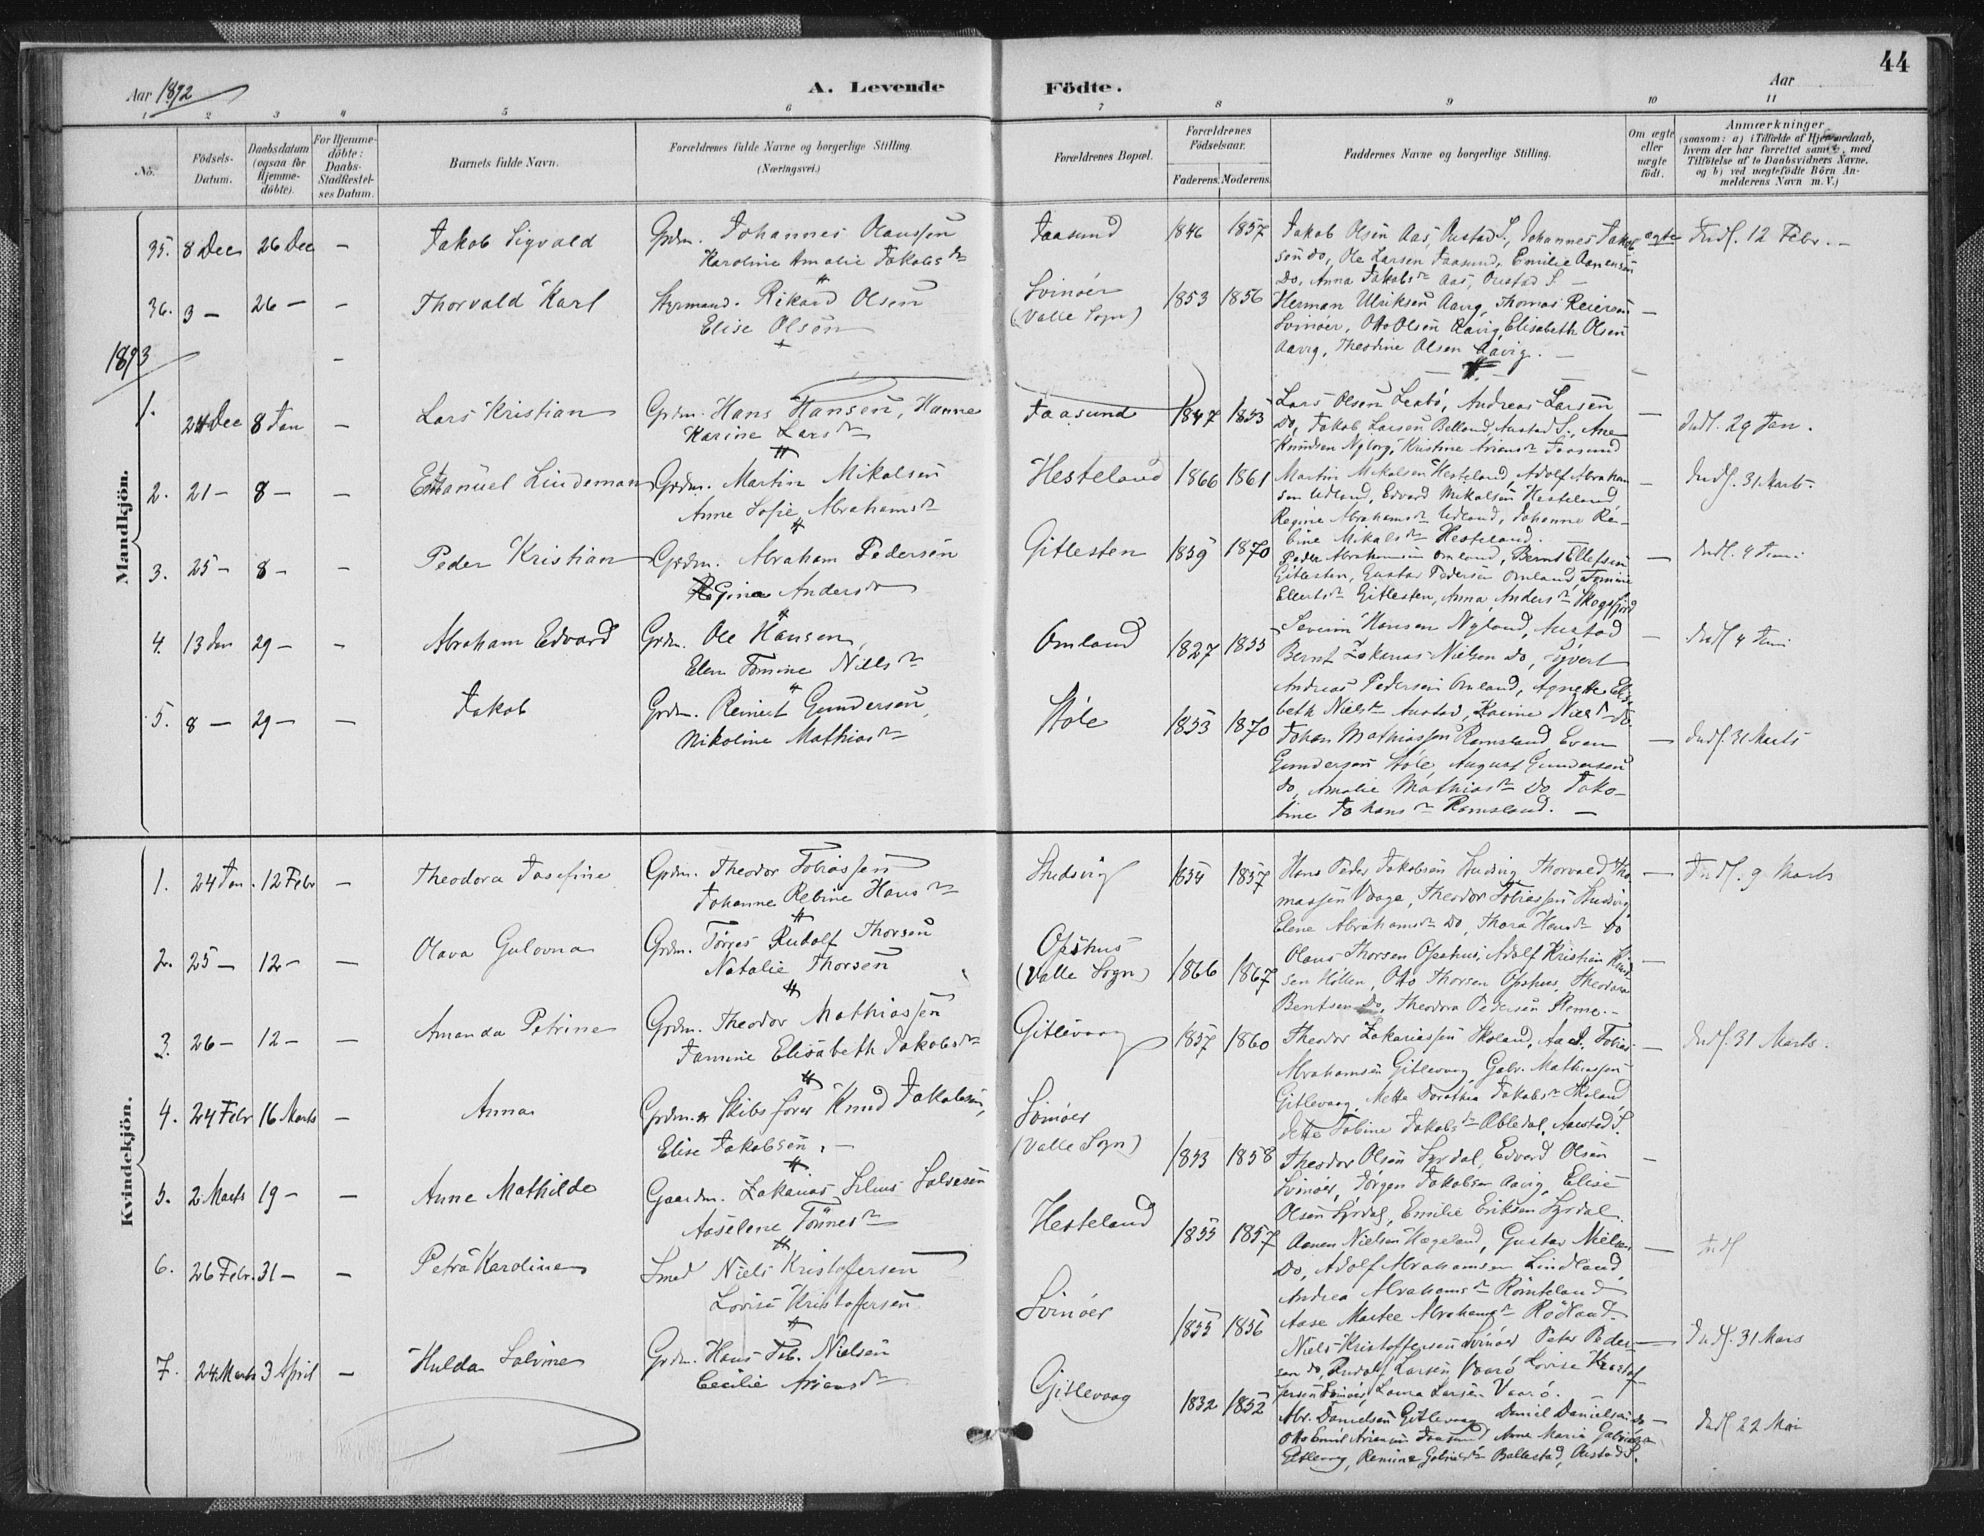 44
Aar 1892
A. Levende
Födte.
Aar
1 2 3 4 5 6 7 8 9 10 11
No.
Födsels-
Datum.
Daabsdatum
(ogsaa for
Hjemme-
döbte).
For Hjemme-
döbte:
Daabs-
Stadfæstel-
ses Datum.
Barnets fulde Navn.
Forældrenes fulde Navne og borgerlige Stilling.
(Næringsvei.)
Forældrenes Bopæl.
Forældrenes
Födselsaar.
Faderens. Moderens.
Faddernes Navne og borgerlige Stilling.
Om ægte
eller
uægte
födt.
Anmærkninger
(saasom: a) i Tilfælde af Hjemmedaab,
hvem der har forrettet samme, med
Tilföielse af to Daabsvidners Navne.
og b) ved uægtefödte Börn An-
melderens Navn m. V.)
Mandkjön.
35. 8 Dec 26 Dec – Jakob Sigvald
Grdm. Johannes Olaussen
Karoline Amalie Jakobsdr
Faasund 1846 1857
Jakob Olsen Aas, Austad S., Johannes Jakob
sen do, Ole Larsen Faasund, Emilie Aanensen
do, Anna Jakobsdr Aas, Austad S. –
ægte Indf. 12 Febr. –
36. 3 – 26 – – Thorvald Karl
Styrmand. Rikard Olsen
Elise Olsen
Svinöer
(Valle Sogn) 1853 1856
Herman Ulriksen Aavig, Thomas Reiersen
Svinöer, Otto Olsen Aavig, Elisabeth Olsen
Aavig, Theodine Olsen Aavig. –
1893
1. 24 Dec 8 Jan – Lars Kristian
Grdm. Hans Hansen, Hanne
Karine Larsdr
Faasund 1847 1853
Lars Olsen Leabö, Andreas Larsen
do, Jakob Larsen Belland, Austad S., Ane
Knudsen Nyborg, Kristine Ariansdr Faasund
Indf. 29 Jan.
2. 21 – 8 – – Emanuel Lindeman
Grdm. Martin Mikalsen
Anne Sofie Abrahamsdr
Hesteland 1866 1861
Martin Mikalsen Hesteland, Adolf Abraham
sen Udland, Edvard Mikalsen Hesteland,
Regine Abrahamsdr Udland, Johanne Ra-
bine Mikalsdr Hesteland.
Indf. 31 Marts.
3. 25 – 8 – – Peder Kristian
Grdm. Abraham Pedersen
Regina Andersdr
Gitlesten 1859 1870
Peder Abrahamsen Omland, Bernt Ellefsen
Gitlesten, Gustav Pedersen Omland, Tomine
Ellertsdr Gitlesten, Anna Andersdr Skogsfjord
Indf. 4 Juni
4. 13 Jan 29 – Abraham Edvard
Grdm. Ole Hansen,
Elen Tomine Nilsdr
Omland 1827 1855
Severin Hansen Nyland, Austad
Bernt Zakarias Nielsen do, Syvert
Andreas Pedersen Omland, Agnethe Elisa
beth Nielsdr Austad, Karine Nielsdr do.
Indf 4 Juni
5. 8 – 29 – – Jakob
Grdm. Reinert Gundersen,
Nikoline Mathiasdr
Höle 1853 1870
Johan Mathiassen Ramsland, Even
Gundersen Höle, August Gundersen
do, Amalie Mathiasdr do Jako-
bine Johansdr Ramsland. –
Indf. 31 Marts
Kvindekjön.
1. 24 Jan. 12 Febr – Theodora Josefine
Grdm. Theodor Tobiassen
Johanne Rebine Hansdr
Studsvig 1854 1857
Hans Peder Jakobsen Studsvig Thorvald Tho
massen Vaage, Theodor Tobiassen Studsvig
Elene Abrahamsdr do, Thora Hansdr do
Indf. 9 Marts
2. 25 – 12 – – Olava Gulovna
Grdm. Törres Rudolf Thorsen
Natalie Thorsen
Opshus
(Valle Sogn) 1866 1867
Olaus Thorsen Opshus, Adolf Kristian Knud
sen Höllen, Otto Thorsen Opshus, Theodora
Bentsen do, Theodora Pedersen Stemo. –
3. 26 – 12 – – Amanda Petrine
Grdm. Theodor Mathiassen
Tomine Elisabeth Jakobsdr
Gitlevaag 1857 1860
Theodor Zakariassen Skoland, Aa S. Tobias
Abrahamsen Gitlevaag Gabr. Mathiassen
Gitlevaag, Mette Dorothea Jakobsdr Skoland
dette Tobine Jakobsdr Abledal, Austad S.
Indf. 31 Marts.
4. 24 Febr 16 Marts – Anna
Grdm. & Skibsförer Knud Jakobsen,
Elise Jakobsen. –
Svinöer
(Valle Sogn) 1853 1858
Theodor Olsen Syrdal, Edvard Olsen
Svinöer, Jörgen Jakobsen Aavig, Elise
Olsen Syrdal, Emilie Eriksen Syrdal.
5. 2 Marts 19 – – Anne Mathilde
Gaardm. Zakarias Silius Salvesen
Aaselene Tönnesdr
Hesteland 1855 1857
Aanen Nielsen Hægeland, Gustav Nielsen
do, Adolf Abrahamsen Lindland,
Andrea Abrahamsdr Römteland
Aase Martee Abrahamsdr Rödland.
Indf
6. 26 Febr. 31 – – Petra Karoline
Smed Niels Kristofersen
Lovise Kristoffersen
Svinöer 1855 1856
Niels Kristoffersen Svinöer Peter Peder-
sen do, Rudolf Larsen Vaarö, Lovise Kristof
fersen Svinöer, Laura Larsen Vaarö.
Indf. 31 Mars
7. 24 Marts 3 April – Hulda Salvine
Grdm. Hans Tob. Nielsen
Cecilie Ariansdr
Gitlevaag 1832 1852
Abr. Danielsen Gitlevaag, Daniel Danielsen do
Otto Emil Ariansen Faasund, Anne Maria Gabrielsen
Gitlevaag, Remine Gabrielsdr Ballestad, Austad S.
Indf 22 Mai